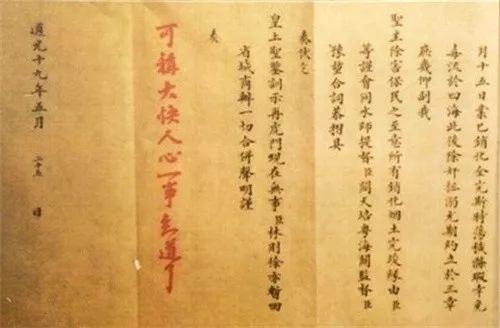 月十五日業已銷化全完斯特荡穢滌瑕幸免
毒流於四海此後除奸拯溺尤期約立於三章
庶幾仰副我
聖主除害保民之至意所有銷化烟土完竣緣由臣
等謹會同水師提督臣關天培粤海關監督臣
豫堃合詞恭摺具
奏伏乞
皇上聖鑒訓示再虎門現在無事臣林則徐亦暫回
省城商辦一切合併聲明謹
奏
可稱大快人心一事知道了
道光十九年五月 二十五 日